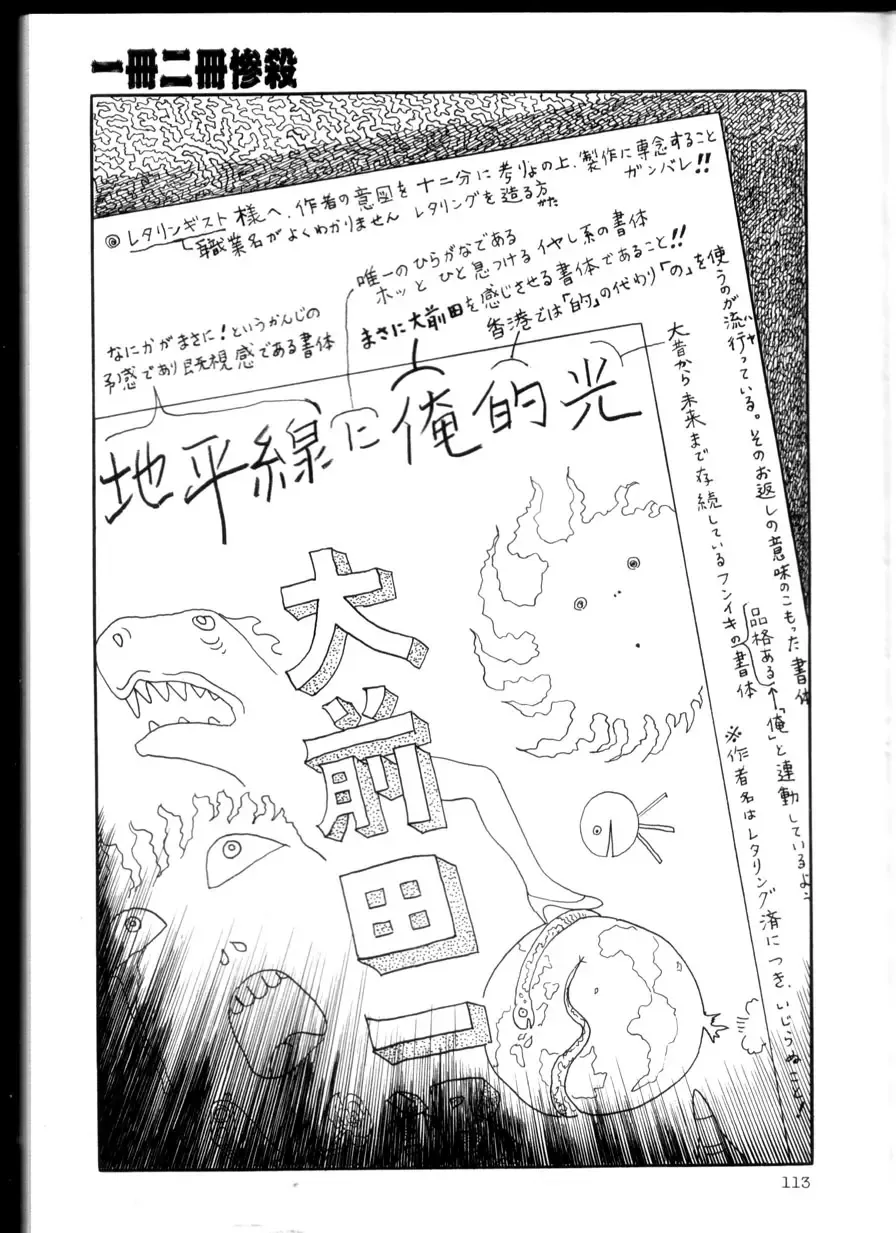 一冊二冊惨殺
◎レタリンギスト様へ、作者の意図を十二分に考りょの上、製作に専念すること
ガンバレ!!
職業名がよくわかりません レタリングを造る方
がた
唯一のひらがなである
ホッとひと息つけるイヤし系の書体
まさに大前田を感じさせる書体であること!!
香港では「的」の代わり「の」を使うのが流行っている。そのお返しの意味のこもった書体
ハヤ
品格ある
↑「俺」と連動しているよ
なにかがまさに!というかんじの
予感であり既視感である書体
大昔から未来まで存続しているフンイキの書体
地平線に俺的光
大前田二
※作者名はレタリング済につき、いじらぬこと!
113